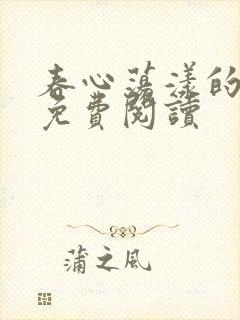 春心蕩漾的
免費閱讀
蒲之風